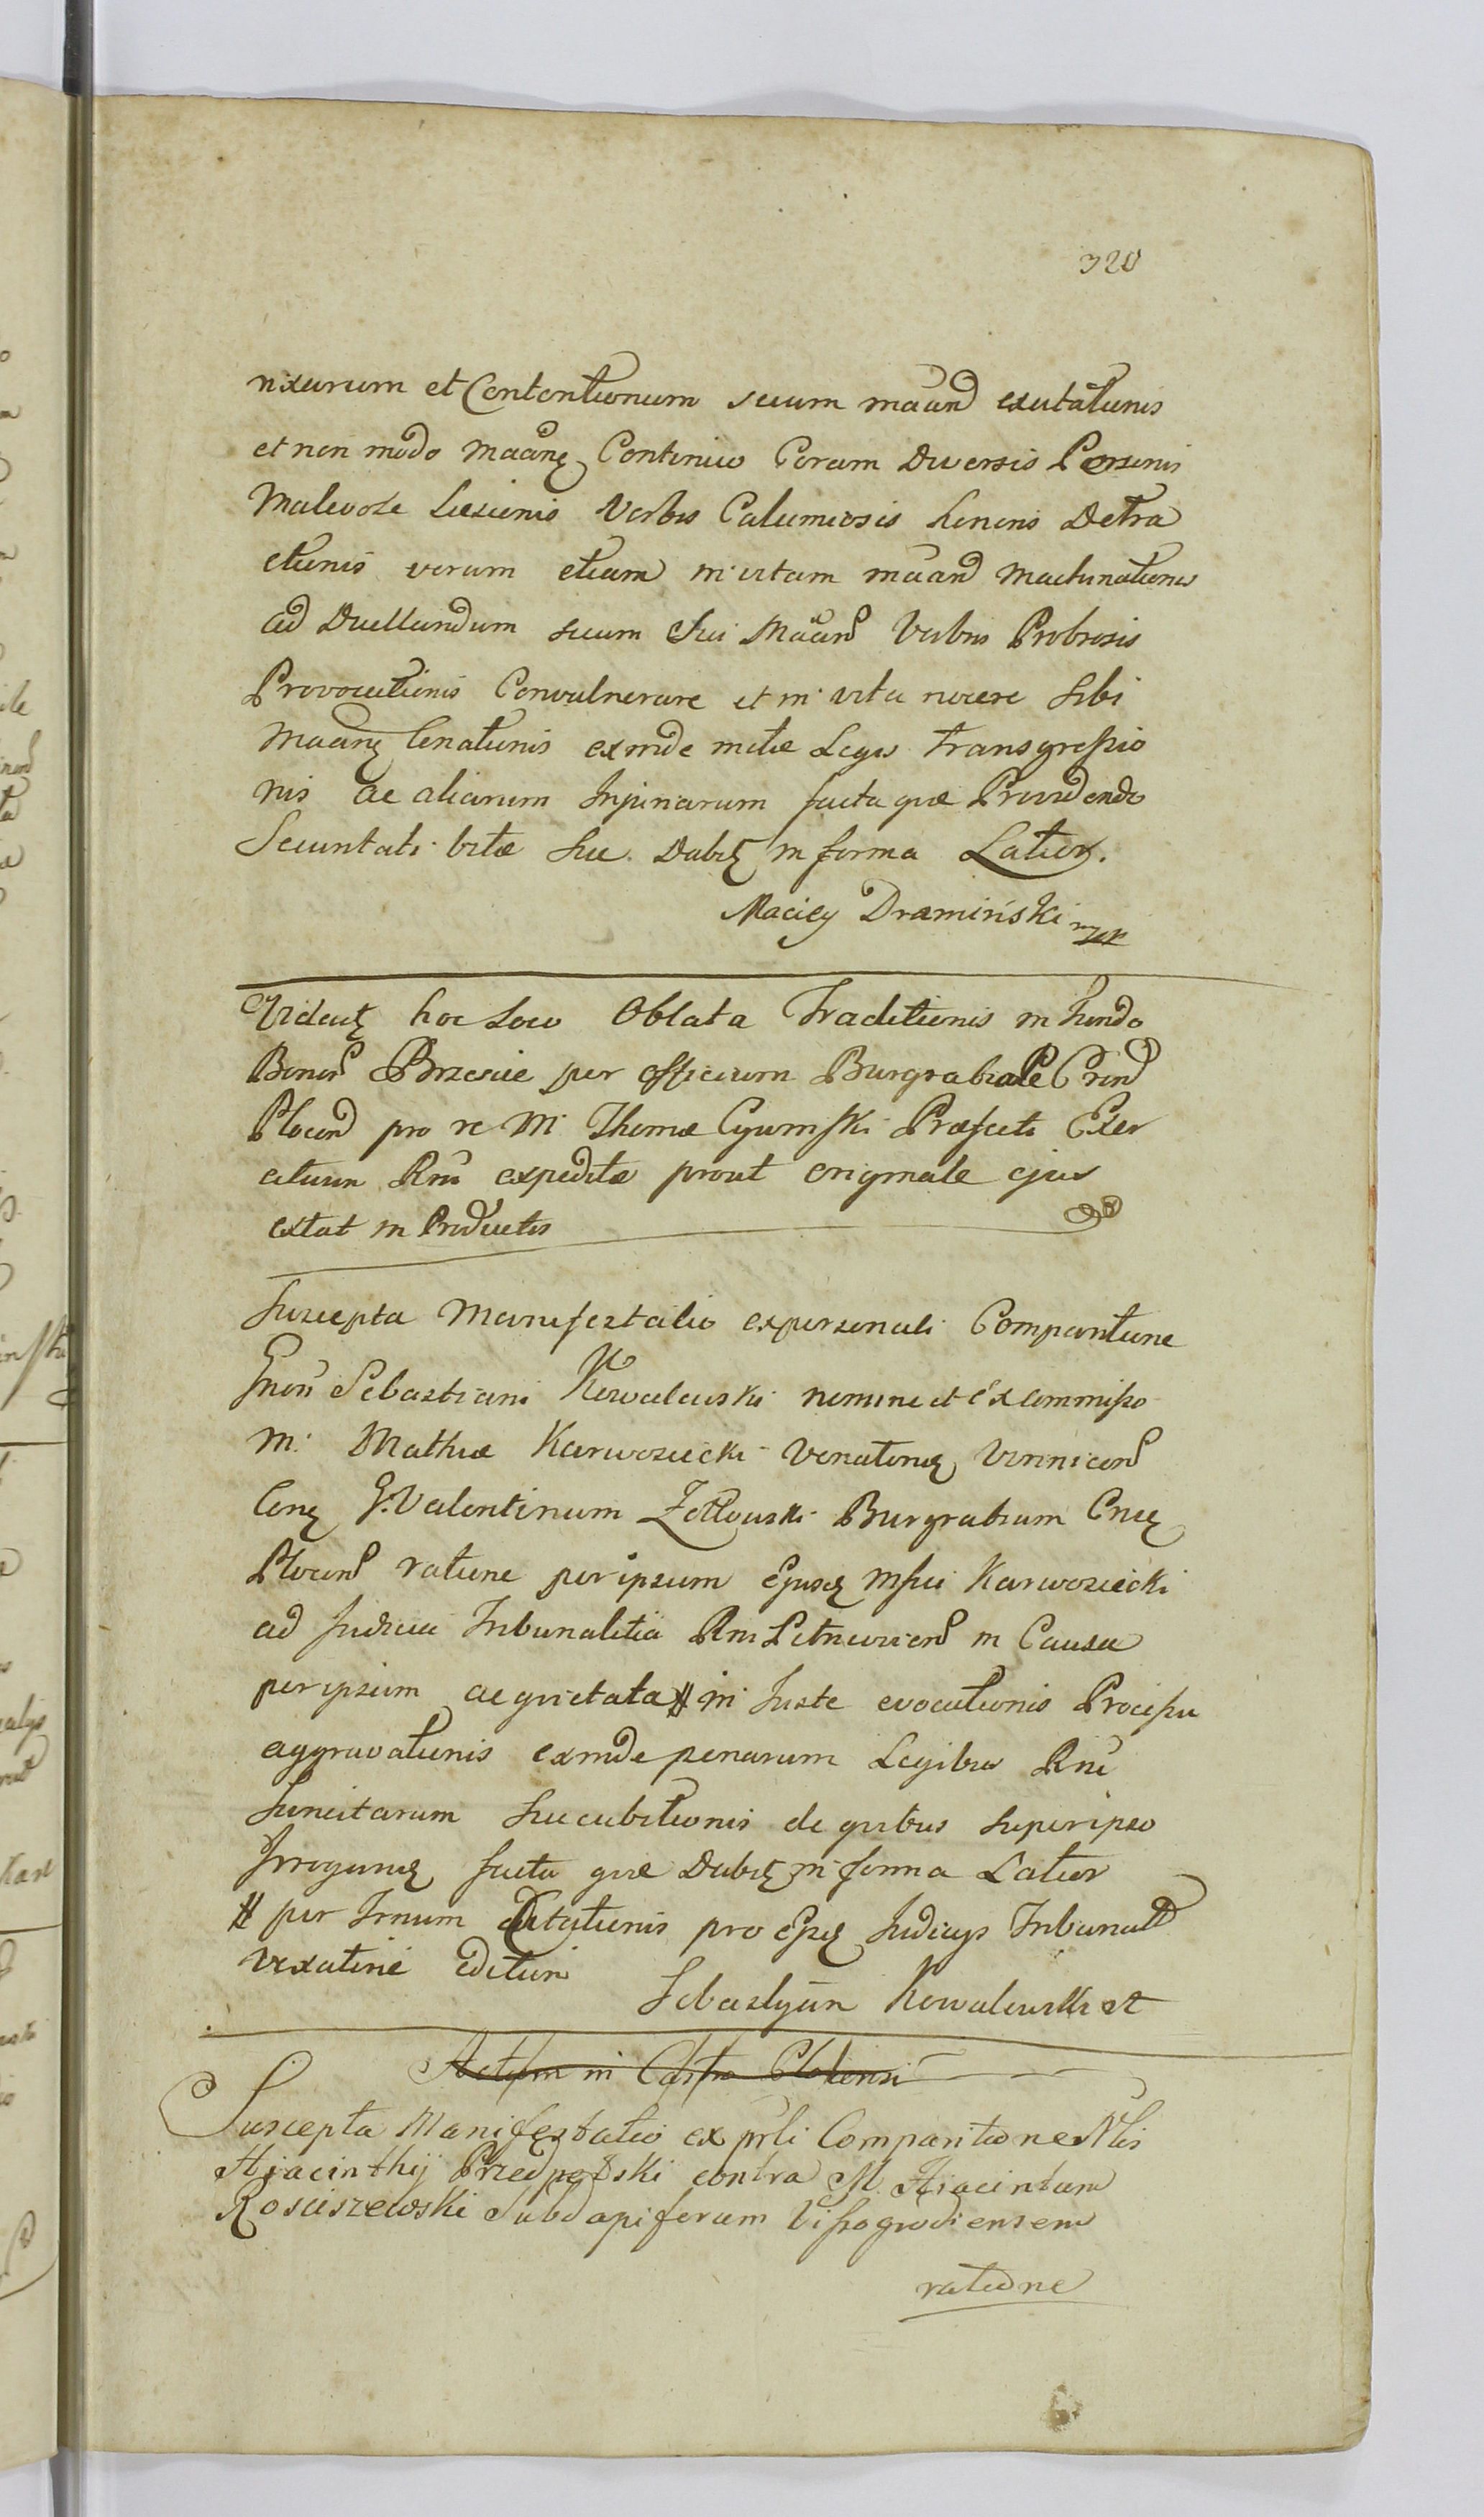 320
rixarum et Contentionum secum maand excitationis
et non modo maane Continuo Coram Diversis Personis
Malevole Laesionis Verbis Calumniosis honoris Detra
ctionis verum etiam in vitam maand machinationis
ad Duellandum secum sui Maand Verbis Probrosis
Provocationis Convulnerare et in vita nocere sibi
Maane Conationis exinde metae Legis transgressio
nis ac aliarum Injuriarum facta quae Providendo
Securitati vitae suae Dabit in forma Latior.
Maciey Dramiński mp
Videat hoc Loco Oblata Traditionis in fundo
Bonor Brzescie per officium Burgrabiale Cren
Plocen pro re M Thomae Czumski Praefecti Exer
cituum Rni expeditae prout originale ejus
extat in Productis
Suscepta Manifestatio ex personali Comparitione
Gnosi Sebastiani Kowalewski nomine et ex commisso
M: Mathiae Karwosiecki Venatoris Vinnicen
Cone G. Valentinum Zotlowski Burgrabium Cnse
Plocen ratione per ipsum Ejusd Msui Karwosiecki
ad Judicia Tribunalitia Rni Petricovien in Causa
per ipsum ac quietata # in Juste evocationis Processu
aggravationis exinde penarum Legibus Rni
Sancitarum Succubitionis de quibus super ipso
Irrogans facta quae Dabit in forma Latior
# per Irnum Citationis pro Ejsd Judicys Tribunal
vexatine editum
Sebastyan Kowalewski
Actum in Castro Plocensi
Suscepta Manifestatio ex prli Comparitione Nlis
Hiacinthij Przedpełski contra M. Hiacintum
Rosciszewski Subdapiferum Vissogrodiensem
ratione